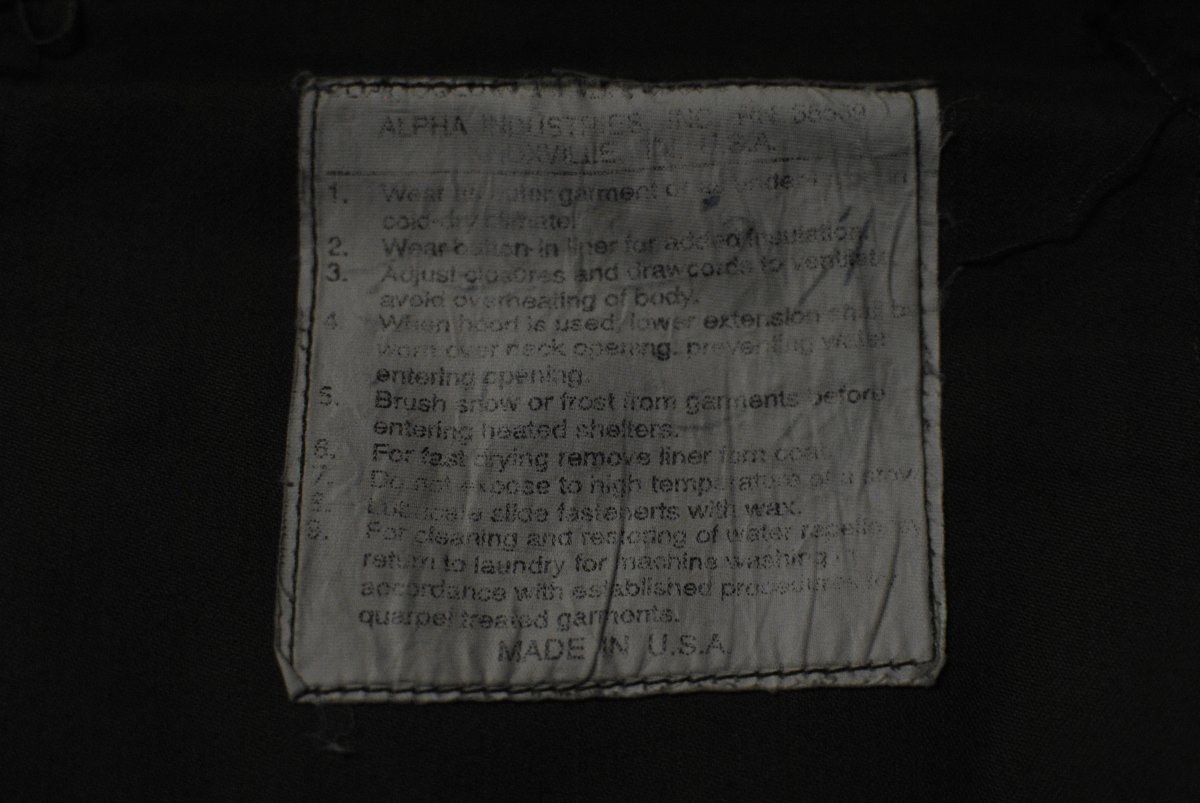 ALPHA INDUSTRIES, INC. RN 58539
KNOXVILLE, TN U.S.A.
1. Wear as outer garment or as under
cold-dry climate.
2. Wear button-in liner for added insulation.
3. Adjust closures and drawcords to ventilate
avoid overheating of body.
4. When hood is used, lower extension shall be
worn over neck opening, preventing
entering opening.
5. Brush snow or frost from garments before
entering heated shelters.
6. For fast drying remove liner form coat.
7. Do not expose to high temperature of a stove
8. Lubricate slide fastenerts with wax.
9. For cleaning and restoring of water
return to laundry for machine washing in
accordance with established procedures
quarpel treated garmonts.
MADE IN U.S.A.